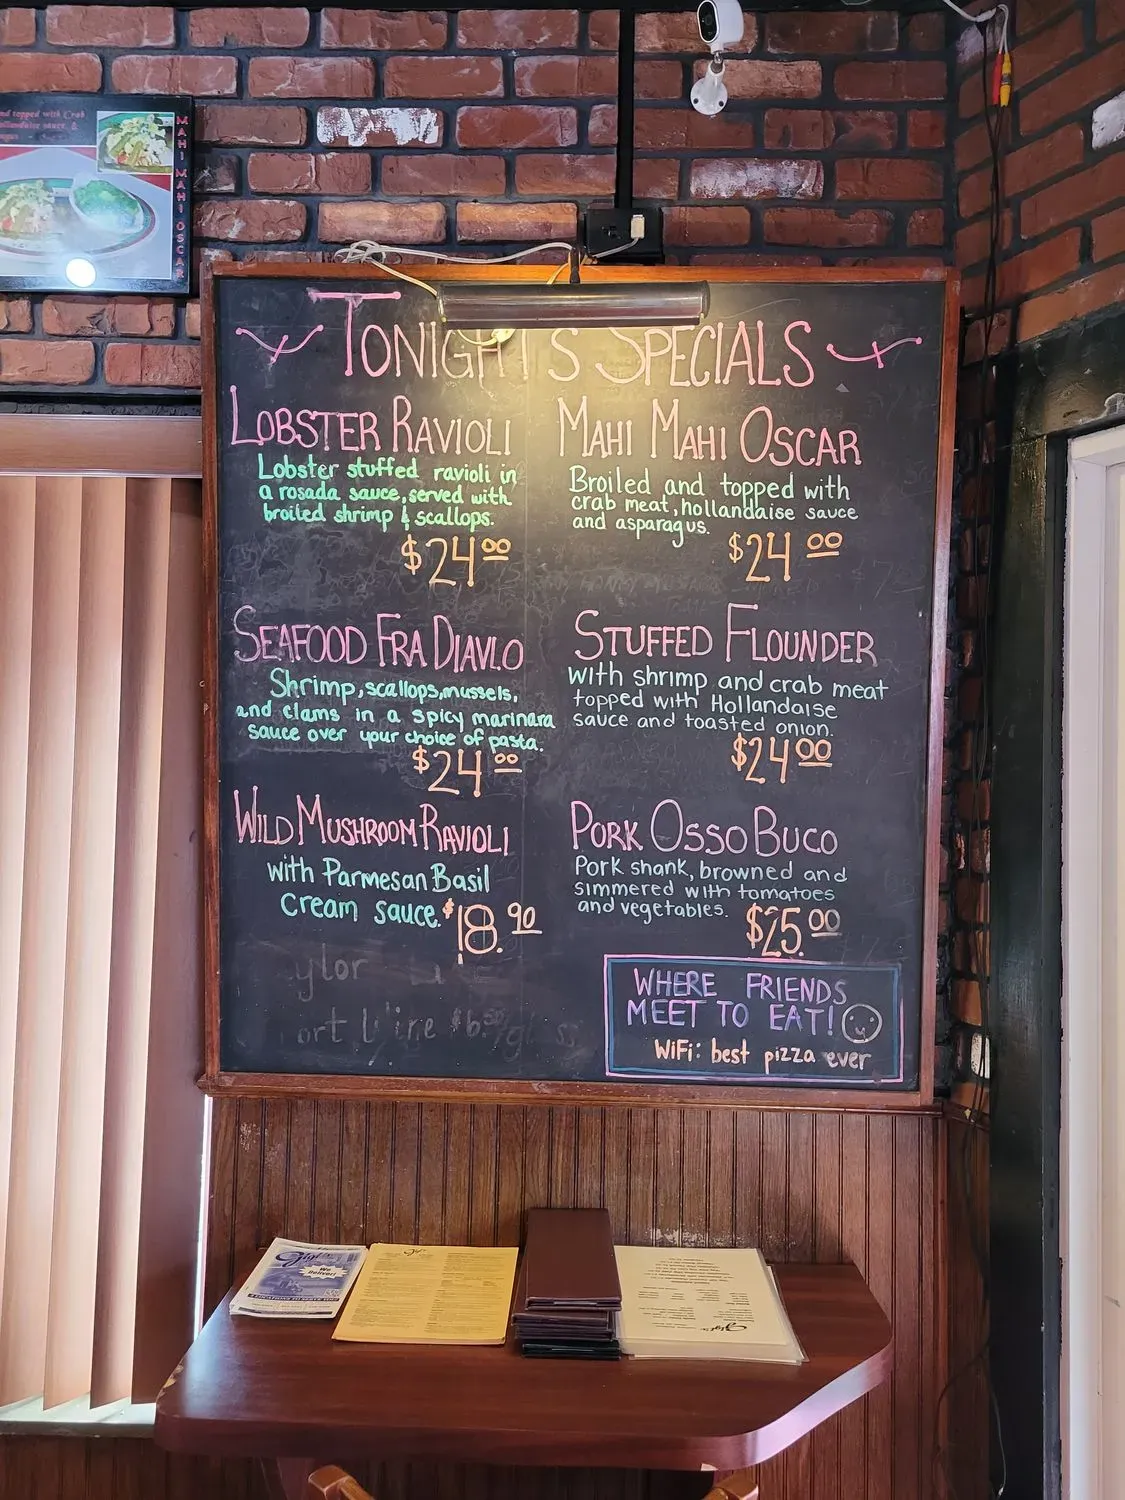 and topped with Crab
Hollandaise sauce &
MAHI MAHI OSCAR
TONIGHT'S SPECIALS
LOBSTER RAVIOLI
Lobster stuffed ravioli in
a rosada sauce, served with
broiled shrimp & scallops.
$24.00
SEAFOOD FRA DIAVLO
Shrimp, scallops, mussels,
and clams in a spicy marinara
sauce over your choice of pasta.
$24.00
WILD MUSHROOM RAVIOLI
with Parmesan Basil
cream sauce. $18.90
MAHI MAHI OSCAR
Broiled and topped with
crab meat, hollandaise sauce
and asparagus.
$24.00
STUFFED FLOUNDER
with shrimp and crab meat
topped with Hollandaise
sauce and toasted onion.
$24.00
PORK OSSO BUCO
Pork shank, browned and
simmered with tomatoes
and vegetables. $25.00
WHERE FRIENDS
MEET TO EAT!
WiFi: best pizza ever
We
Deliver!